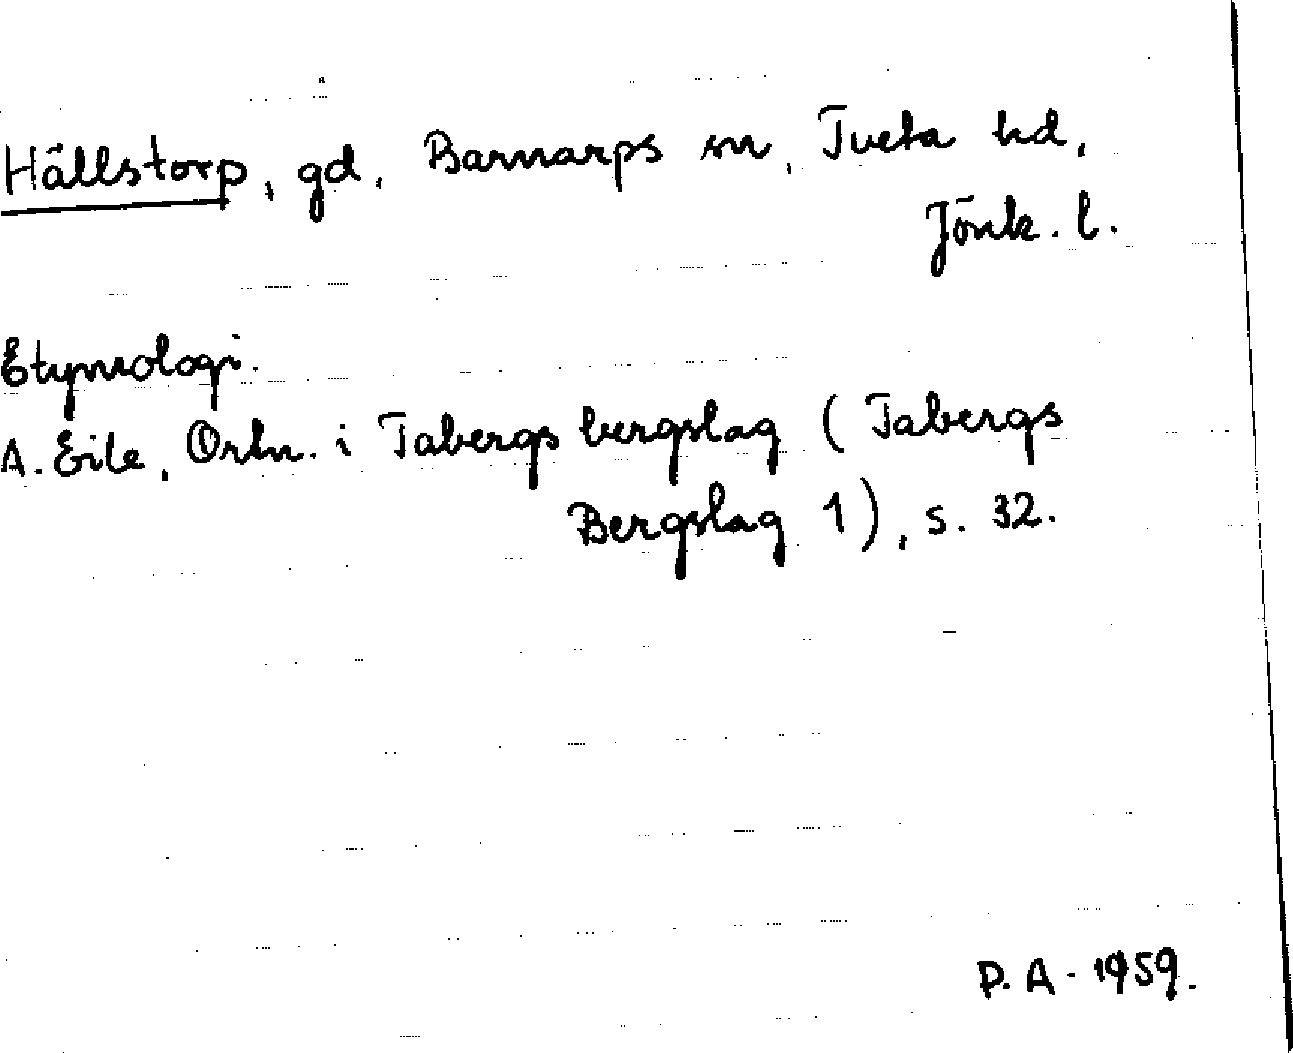 Hällstorp, gd, Barnarps sn, Tveta hd,
Jönk. l.
Etymologi.
A. Eile, Ortn. i Tabergs bergslag (Tabergs
Bergslag 1), s. 32.
P. A. 1959.